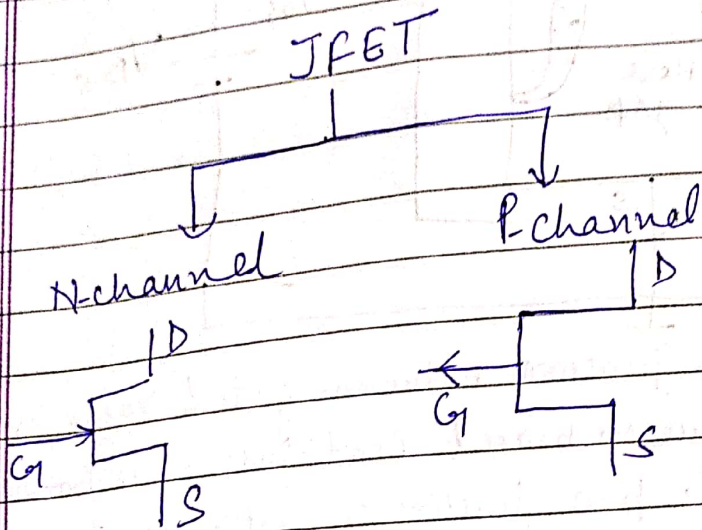 JFET
N-channel
P-channel
D
D
G
G
S
S